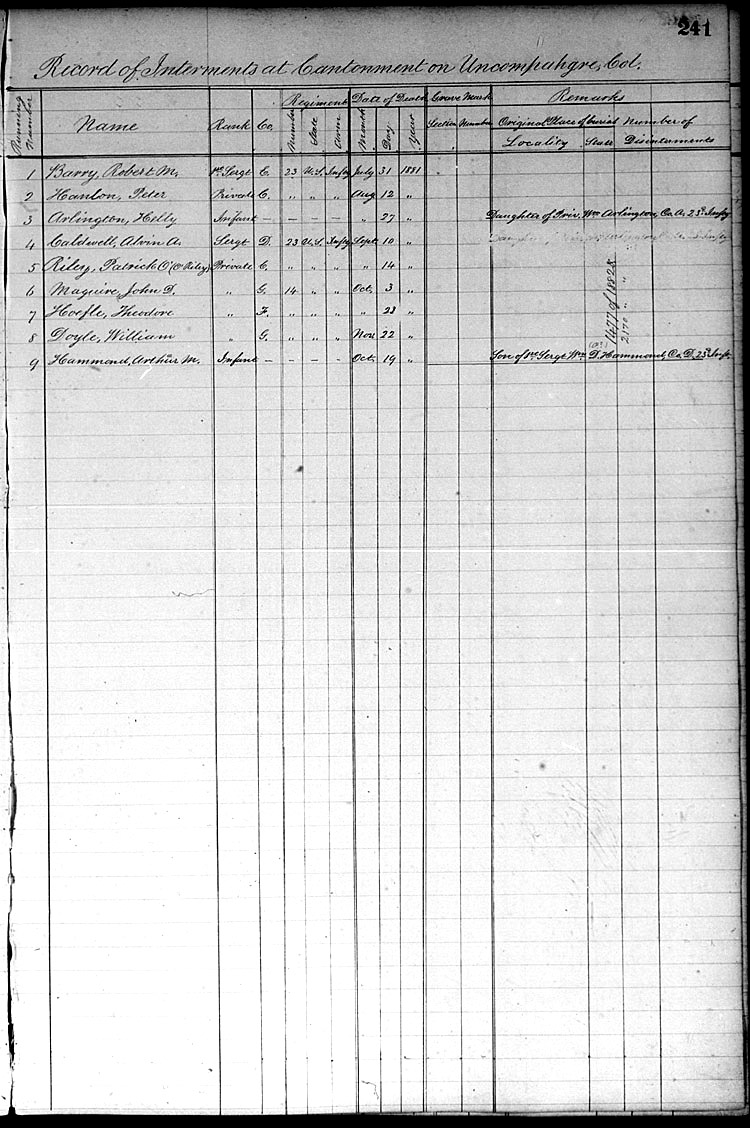 241
Record of Interments at Cantonment on Uncompahgre, Col.
Running Number Name Rank Co. Regiment Number State Arm Date of Death Month Day Year Grave Mark Section Number Remarks Original Place of burial Locality State Number of Disinterments
1 Barry, Robert M. 1st Sergt C. 23 U.S. Infty July 31 1881
2 Hanlon, Peter Private C. " " " Aug 12 "
3 Arlington, Helly Infant — — — — " 27 " Daughter of Priv. Wm Arlington, Co. A. 23d Infty
4 Caldwell, Alvin A. Sergt D. 23 U.S. Infty Sept. 10 "
5 Riley, Patrick O' (O'Riley) Private C. " " " " 14 "
6 Maguire, John D. " G. 14 " " Oct. 3 "
7 Hoefle, Theodore " F. " " " " 23 "
8 Doyle, William " G. " " " Nov 22 "
9 Hammond, Arthur M. Infant — — — — Oct. 19 " Son of 1st Sergt Wm D. Hammond, Co. D. 23d Infty
1477 of 1882
2170 " "